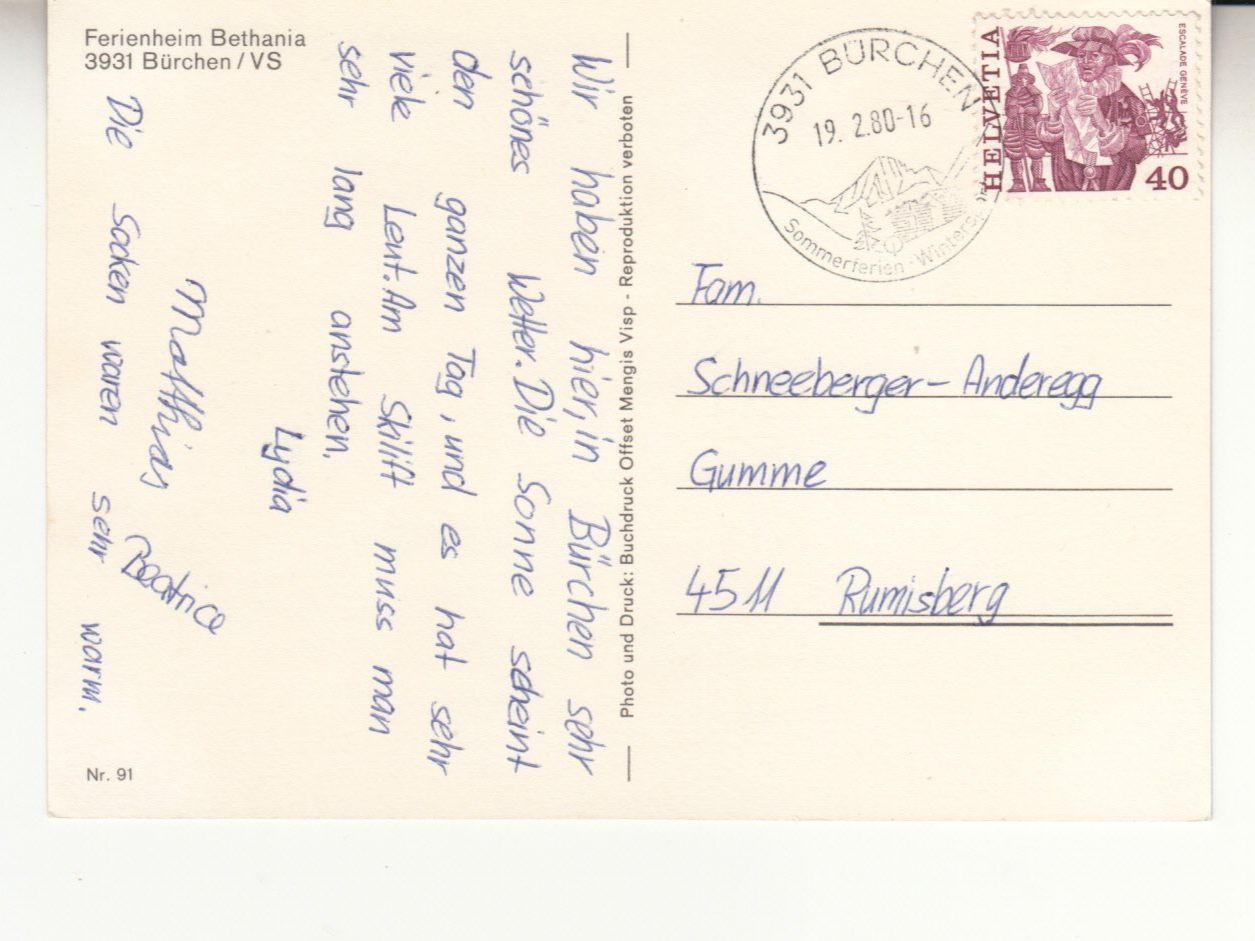 Ferienheim Bethania
3931 Bürchen / VS
Wir haben hier, in Bürchen sehr
schönes Wetter. Die Sonne scheint
den ganzen Tag, und es hat sehr
viele Leut. Am Skilift muss man
sehr lang anstehen.
Lydia
Matthias
Beatrice
Die Socken waren sehr warm.
Nr. 91
Photo und Druck: Buchdruck Offset Mengis Visp - Reproduktion verboten
3931 BÜRCHEN
19. 2.80-16
Sommerferien - Winters
HELVETIA
ESCALADE GENÈVE
40
Fam.
Schneeberger - Anderegg
Gumme
4511 Rumisberg